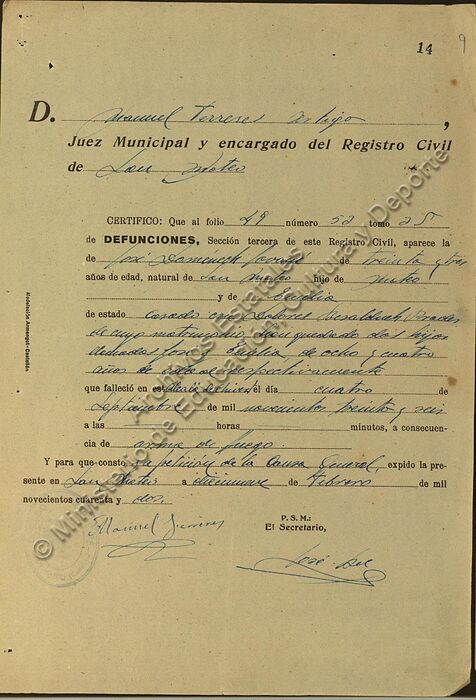 14
9
D. Manuel Ferreres Artigo,
Juez Municipal y encargado del Registro Civil
de San Mateo
CERTIFICO: Que al folio 49 número 52 tomo 25
de DEFUNCIONES, Sección tercera de este Registro Civil, aparece la
de José Domenech de treinta y tres
años de edad, natural de San Mateo hijo de Mateo
y de Emilia
de estado casado con Dolores
de cuyo matrimonio han quedado dos hijos
llamados José y Emilia, de ocho y cuatro
años de edad respectivamente
que falleció en el día cuatro de
Septiembre de mil novecientos treinta y seis
a las horas minutos, a consecuen-
cia de arma de fuego.
Y para que conste y a petición de la Causa General, expido la pre-
sente en San Mateo a diecinueve de Febrero de mil
novecientos cuarenta y dos.
P. S. M.:
El Secretario,
Manuel Ferreres
José
Modelación Armengot.-Castellón.
© Ministerio de Educación, Cultura y Deporte
Archivos Estatales